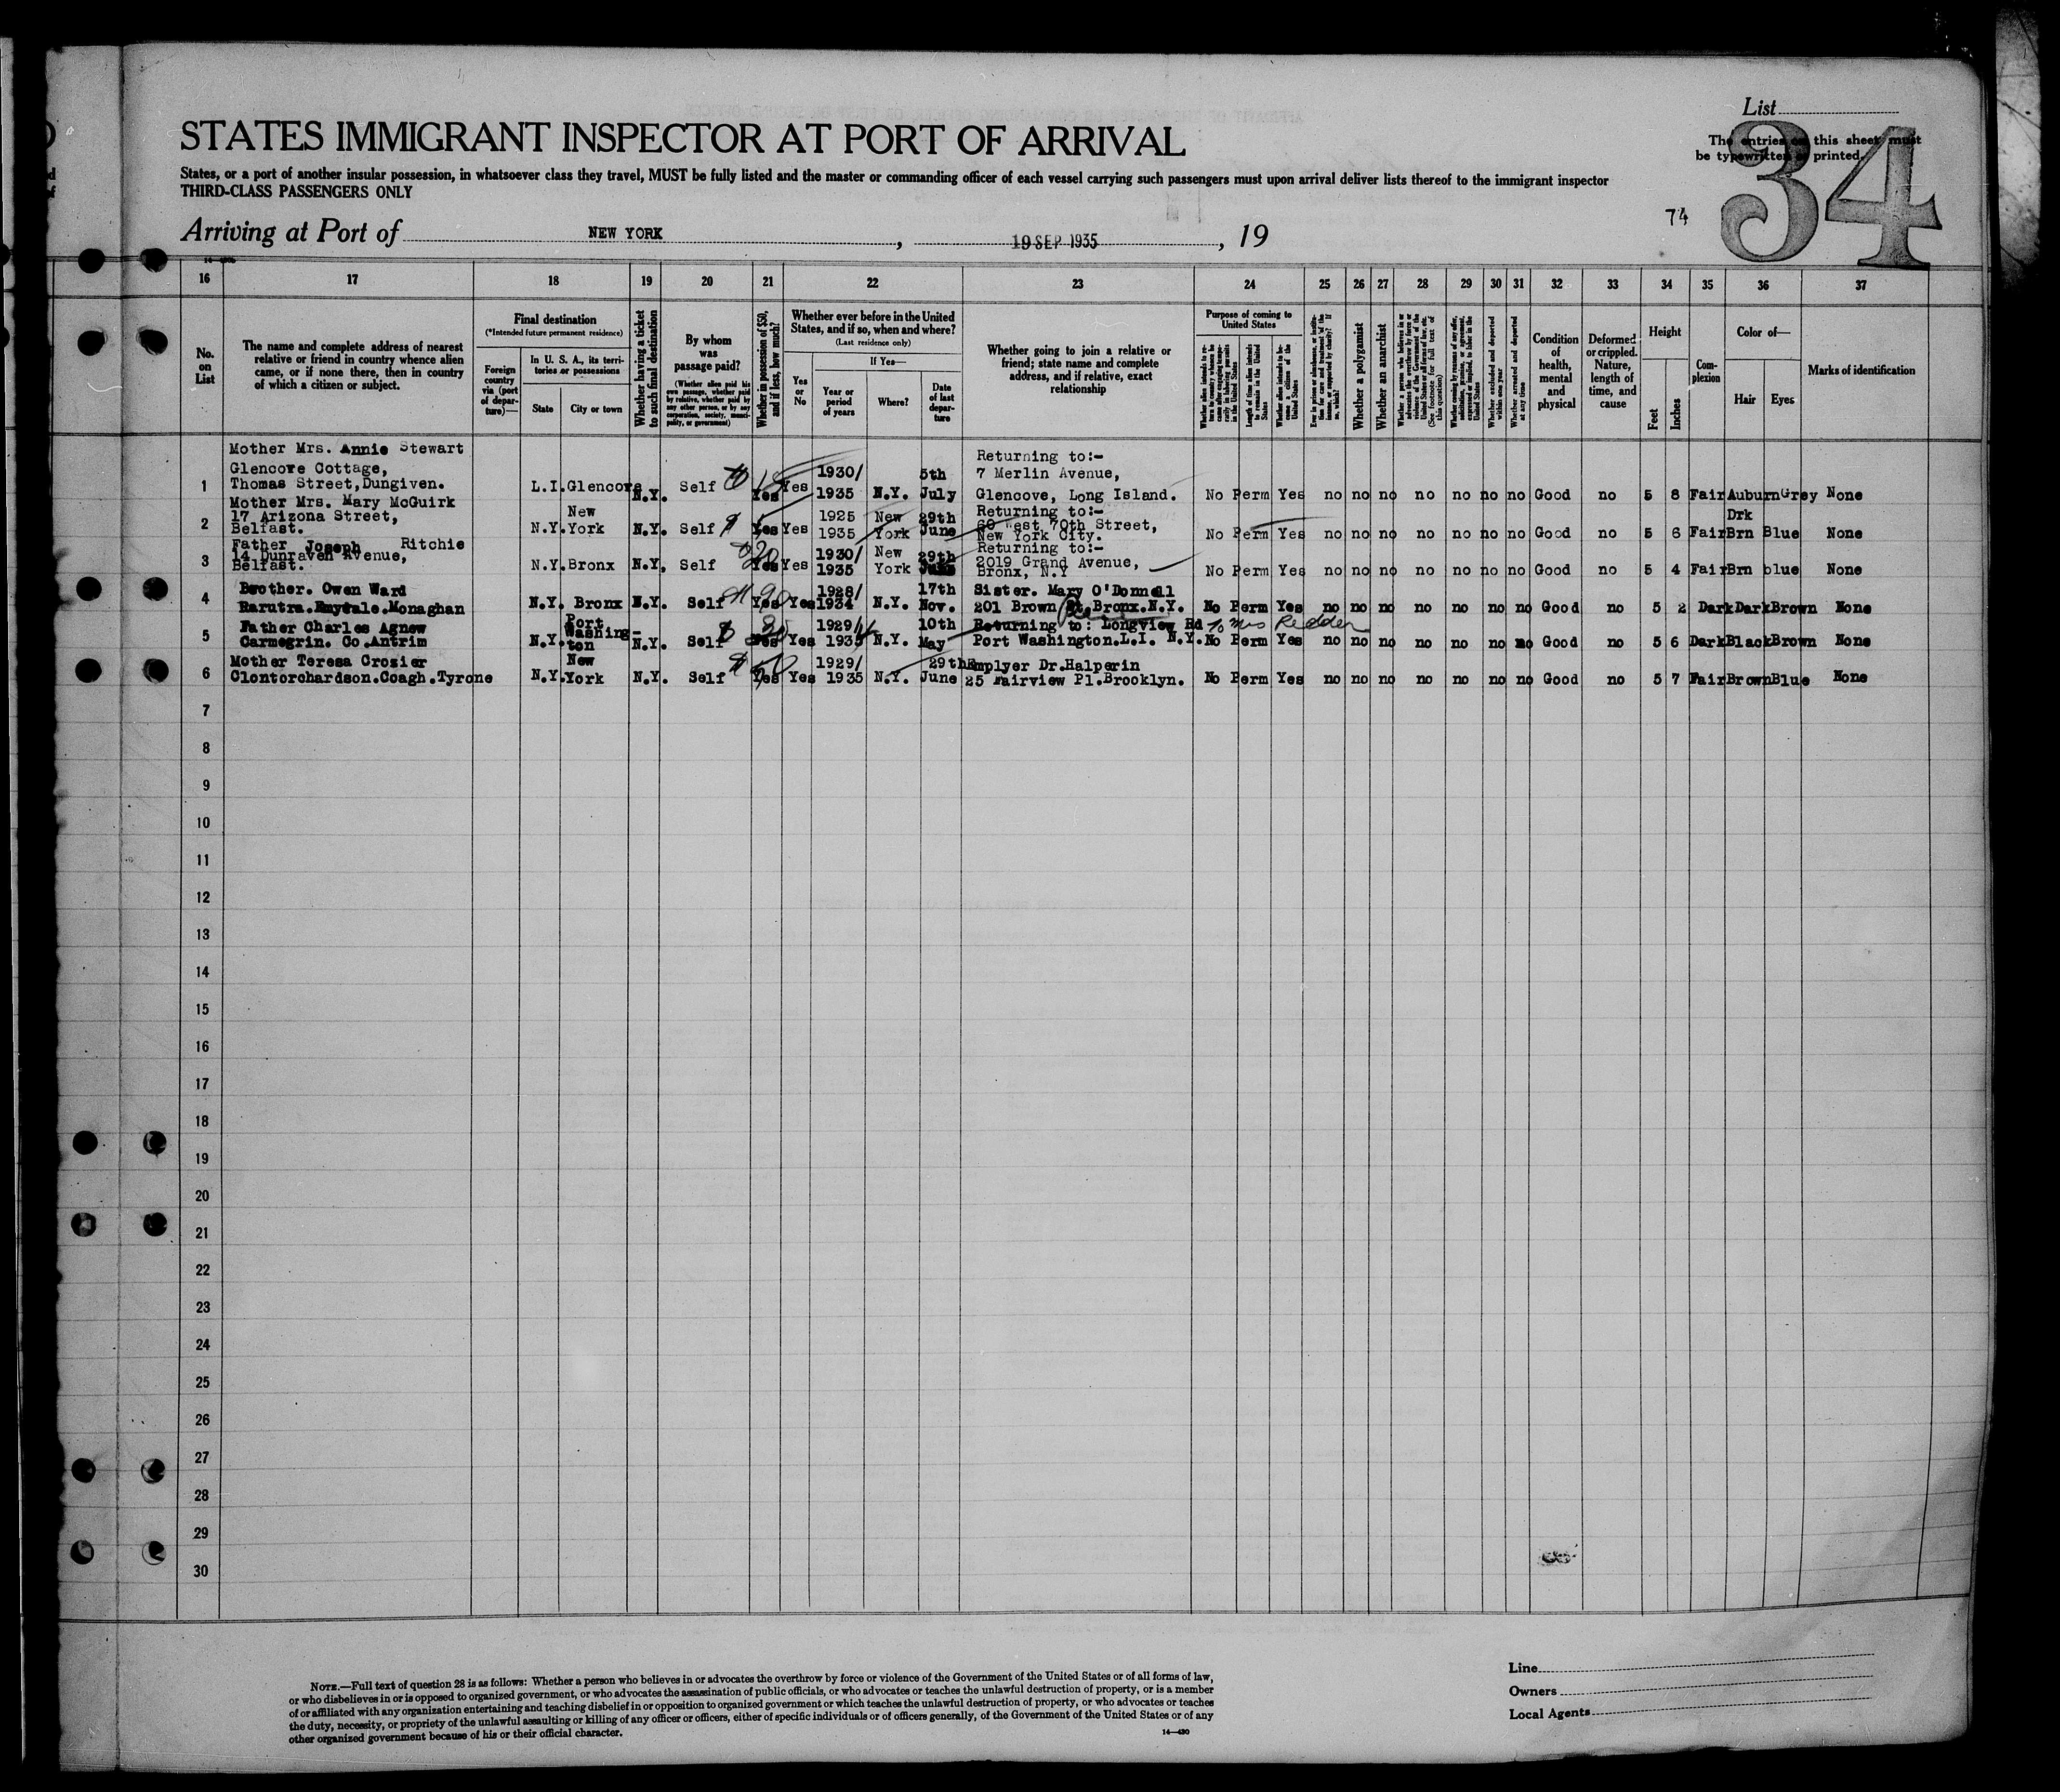 List
34
The entries on this sheet must
be typewritten or printed.
STATES IMMIGRANT INSPECTOR AT PORT OF ARRIVAL
States, or a port of another insular possession, in whatsoever class they travel, MUST be fully listed and the master or commanding officer of each vessel carrying such passengers must upon arrival deliver lists thereof to the immigrant inspector
THIRD-CLASS PASSENGERS ONLY
74
Arriving at Port of NEW YORK, 19 SEP 1935, 19
16 17 18 19 20 21 22 23 24 25 26 27 28 29 30 31 32 33 34 35 36 37
No. on List
The name and complete address of nearest
relative or friend in country whence alien
came, or if none there, then in country
of which a citizen or subject.
Final destination
(*Intended future permanent residence)
Foreign country via (port of departure)—
In U. S. A., its territories or possessions
State
City or town
Whether having a ticket to such final destination
By whom was passage paid?
(Whether alien paid his own passage, whether paid by relative, whether paid by any other person, or by any corporation, society, municipality, or government)
Whether in possession of $50, and if less, how much?
Whether ever before in the United
States, and if so, when and where?
(Last residence only)
Yes or No
If Yes—
Year or period of years
Where?
Date of last departure
Whether going to join a relative or
friend; state name and complete
address, and if relative, exact
relationship
Purpose of coming to
United States
Whether alien intends to return to country whence he came after engaging temporarily in laboring pursuits in the United States
Length of time alien intends to remain in the United States
Whether alien intends to become a citizen of the United States
Ever in prison or almshouse, or institution for care and treatment of the insane, or supported by charity? If so, which?
Whether a polygamist
Whether an anarchist
Whether a person who believes in or advocates the overthrow by force or violence of the Government of the United States or all forms of law, etc. (See footnote for full text of this question)
Whether coming by reason of any offer, solicitation, promise, or agreement, expressed or implied, to labor in the United States
Whether excluded and deported within one year
Whether arrested and deported at any time
Condition of health, mental and physical
Deformed or crippled. Nature, length of time, and cause
Height
Feet
Inches
Complexion
Color of—
Hair
Eyes
Marks of identification
1 Mother Mrs. Annie Stewart
Glencore Cottage,
Thomas Street,Dungiven. L.I. Glencove N.Y. Self $ Yes Yes 1930/ 1935 N.Y. 5th July
Returning to:-
7 Merlin Avenue,
Glencove, Long Island. No Perm Yes no no no no no no no Good no 5 8 Fair Auburn Grey None
2 Mother Mrs. Mary McGuirk
17 Arizona Street,
Belfast. N.Y. New York N.Y. Self $ Yes Yes 1925 1935 New York 29th June
Returning to:-
60 West 70th Street,
New York City. No Perm Yes no no no no no no no Good no 5 6 Fair Drk Brn Blue None
3 Father Joseph Ritchie
14 Dunraven Avenue,
Belfast. N.Y. Bronx N.Y. Self $20 Yes Yes 1930/ 1935 New York 29th June
Returning to:-
2019 Grand Avenue,
Bronx, N.Y No Perm Yes no no no no no no no Good no 5 4 Fair Brn blue None
4 Brother. Owen Ward
Monaghan N.Y. Bronx N.Y. Self Yes Yes 1928/ 1934 N.Y. 17th Nov.
Sister. Mary O'Donnell
201 Brown Bronx.N.Y. No Perm Yes no no no no no no no Good no 5 2 Dark Dark Brown None
5 Father Charles Agnew
Carmegrin. Co.Antrim N.Y. Port Washing-ton N.Y. Self $ Yes Yes 1929/ N.Y. 10th May
Returning to: Longview Rd to Mrs Redder
Port Washington.L.I. N.Y. No Perm Yes no no no no no no no Good no 5 6 Dark Black Brown None
6 Mother Teresa Crosier
Clontorchardson.Coagh.Tyrone N.Y. New York N.Y. Self $ Yes Yes 1929/ 1935 N.Y. 29th June
Emplyer Dr.Halperin
25 Fairview Pl.Brooklyn. No Perm Yes no no no no no no no Good no 5 7 Fair Brown Blue None
7
8
9
10
11
12
13
14
15
16
17
18
19
20
21
22
23
24
25
26
27
28
29
30
NOTE.—Full text of question 28 is as follows: Whether a person who believes in or advocates the overthrow by force or violence of the Government of the United States or of all forms of law,
or who disbelieves in or is opposed to organized government, or who advocates the assassination of public officials, or who advocates or teaches the unlawful destruction of property, or is a member
of or affiliated with any organization entertaining and teaching disbelief in or opposition to organized government or which teaches the unlawful destruction of property, or who advocates or teaches
the duty, necessity, or propriety of the unlawful assaulting or killing of any officer or officers, either of specific individuals or of officers generally, of the Government of the United States or of any
other organized government because of his or their official character.
14—430
Line
Owners
Local Agents